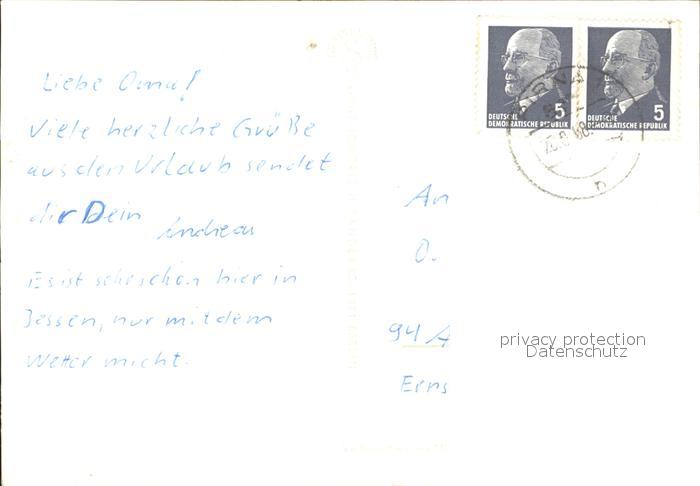 Liebe Oma!
Viele herzliche Grüße
aus den Urlaub sendet
dir Dein
Andreas
Es ist sehr schön hier in
Jessen, nur mit dem
Wetter nicht.
DEUTSCHE
DEMOKRATISCHE REPUBLIK
5
DEUTSCHE
DEMOKRATISCHE REPUBLIK
5
An
O.
94 A
Erns
privacy protection
Datenschutz